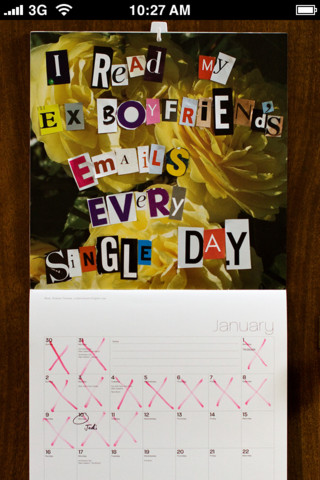 3G 10:27 AM
I Read My
Ex Boyfriend's
Emails
EVERy
SiNGLE DAY
January
30 31 1
2 3 4 5 6 7 8
9 10 11 12 13 14 15
16 17 18 19 20 21 22